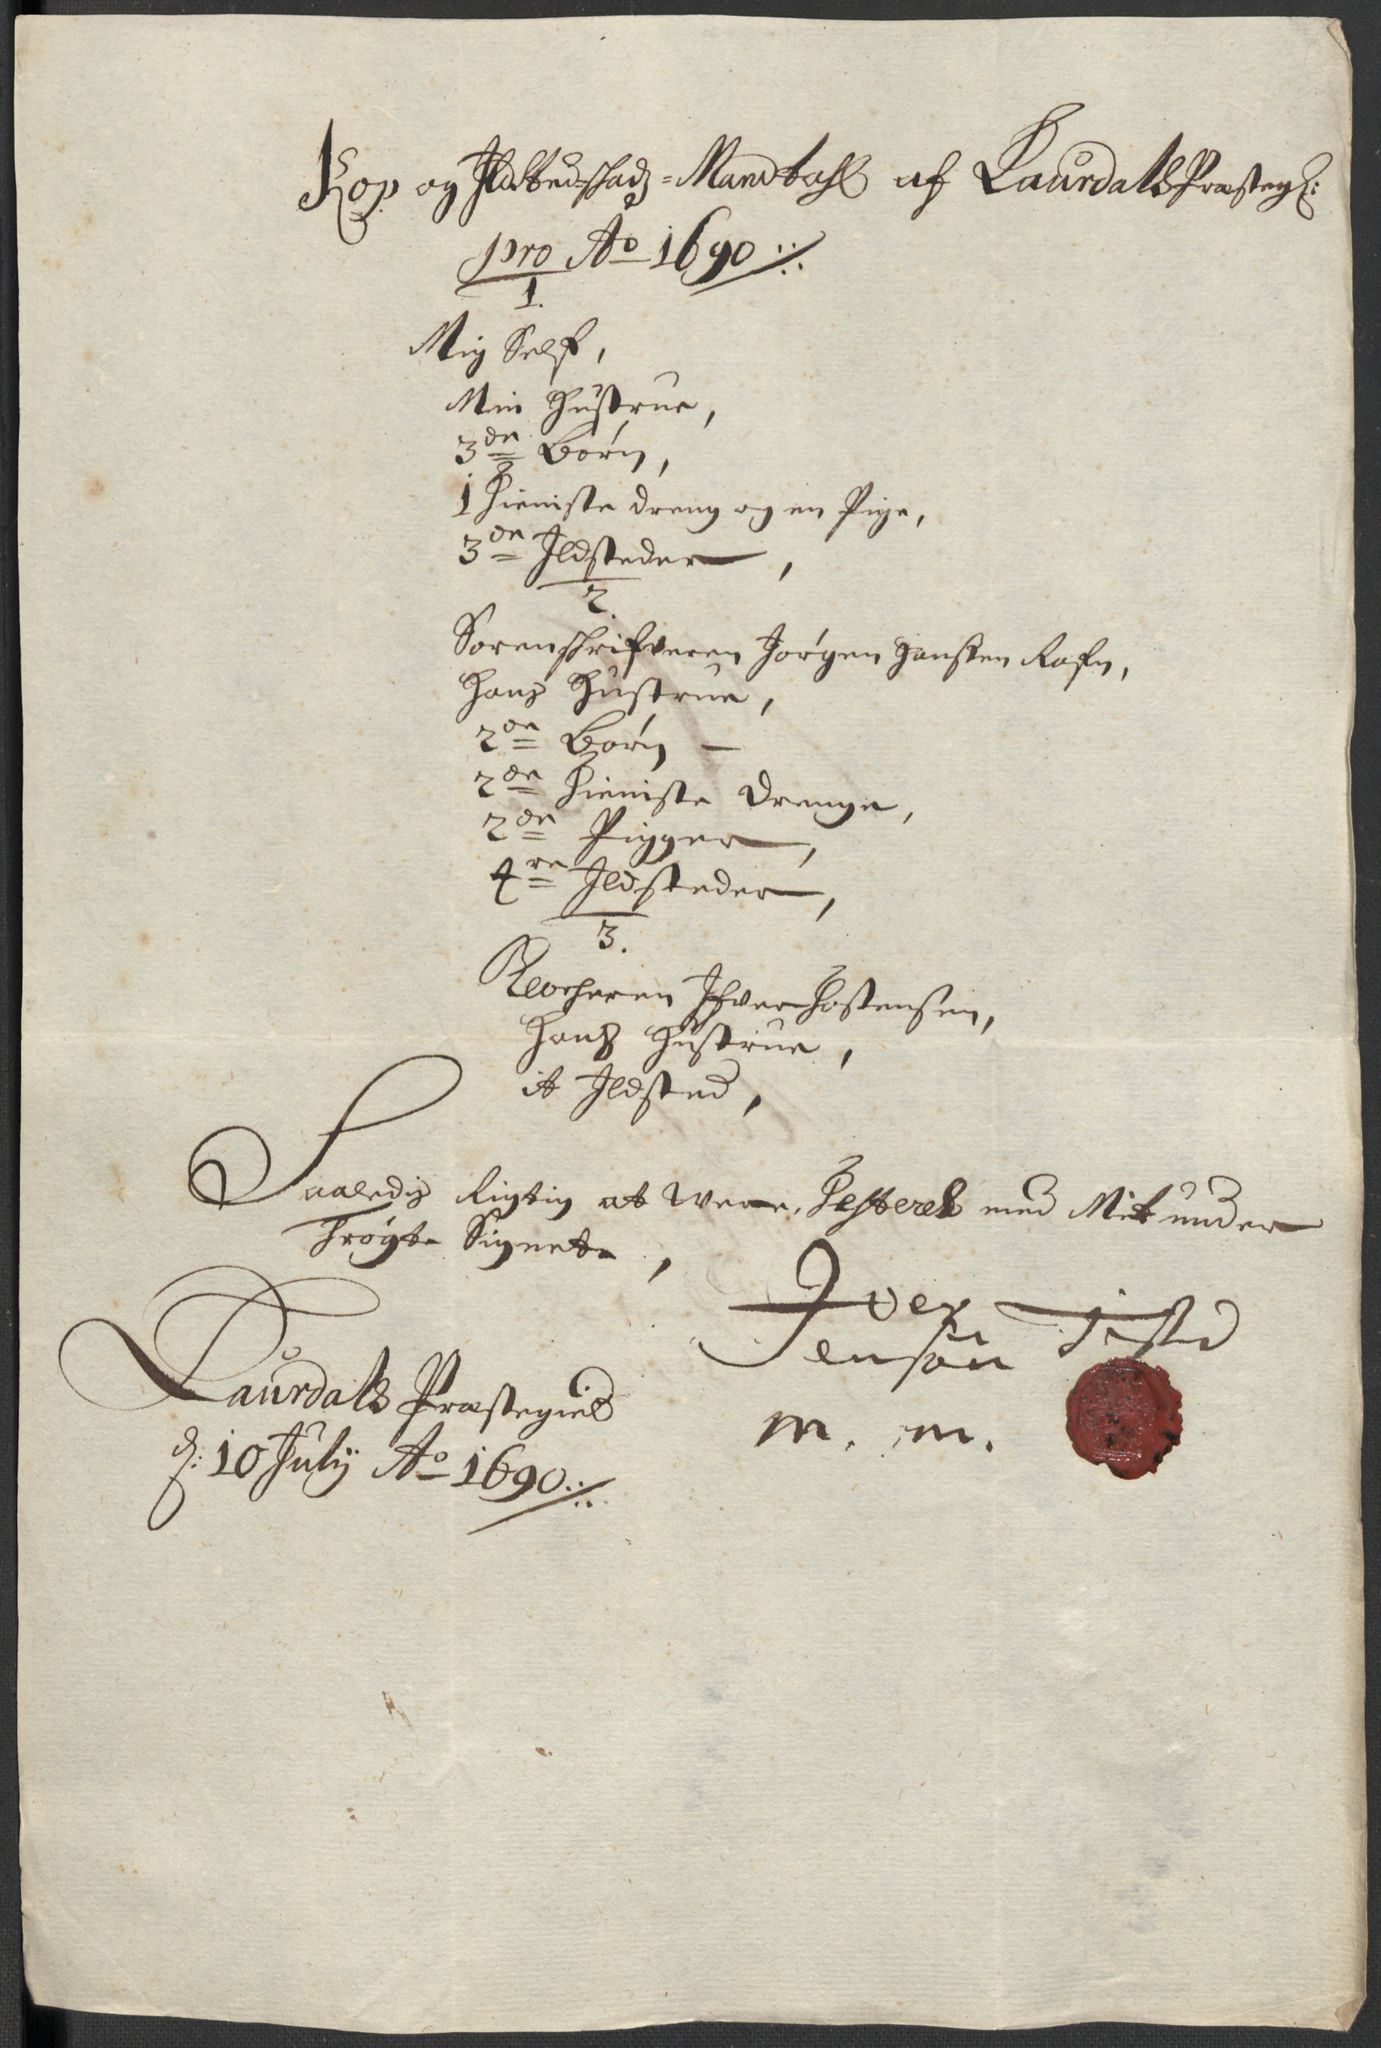 Kop og Ildstedschadz-Mandtahl af LaurdalsPræstegl:
pro Ao 1690
1.
Mig Self,
Min Hustrue,
3de Börn,
1 Tieniste dreng og en Pige,
3de Ildsteder,
2.
Sorenschrifveren Jörgen Hansten Rafn,
Hans Hustrue,
2de Börn
2de Tieniste Drenge,
2de Pigger,
4re Ildsteder,
3.
Klocheren Ifver Tostensen,
Hans Hustrue,
it Ildsted,
Saaledis Rigtig at were, Testerer med Mit under
Trögte Signete,
Iver
Jensøn
m. m.
Laurdals Præstegield
d: 10 July Ao 1690